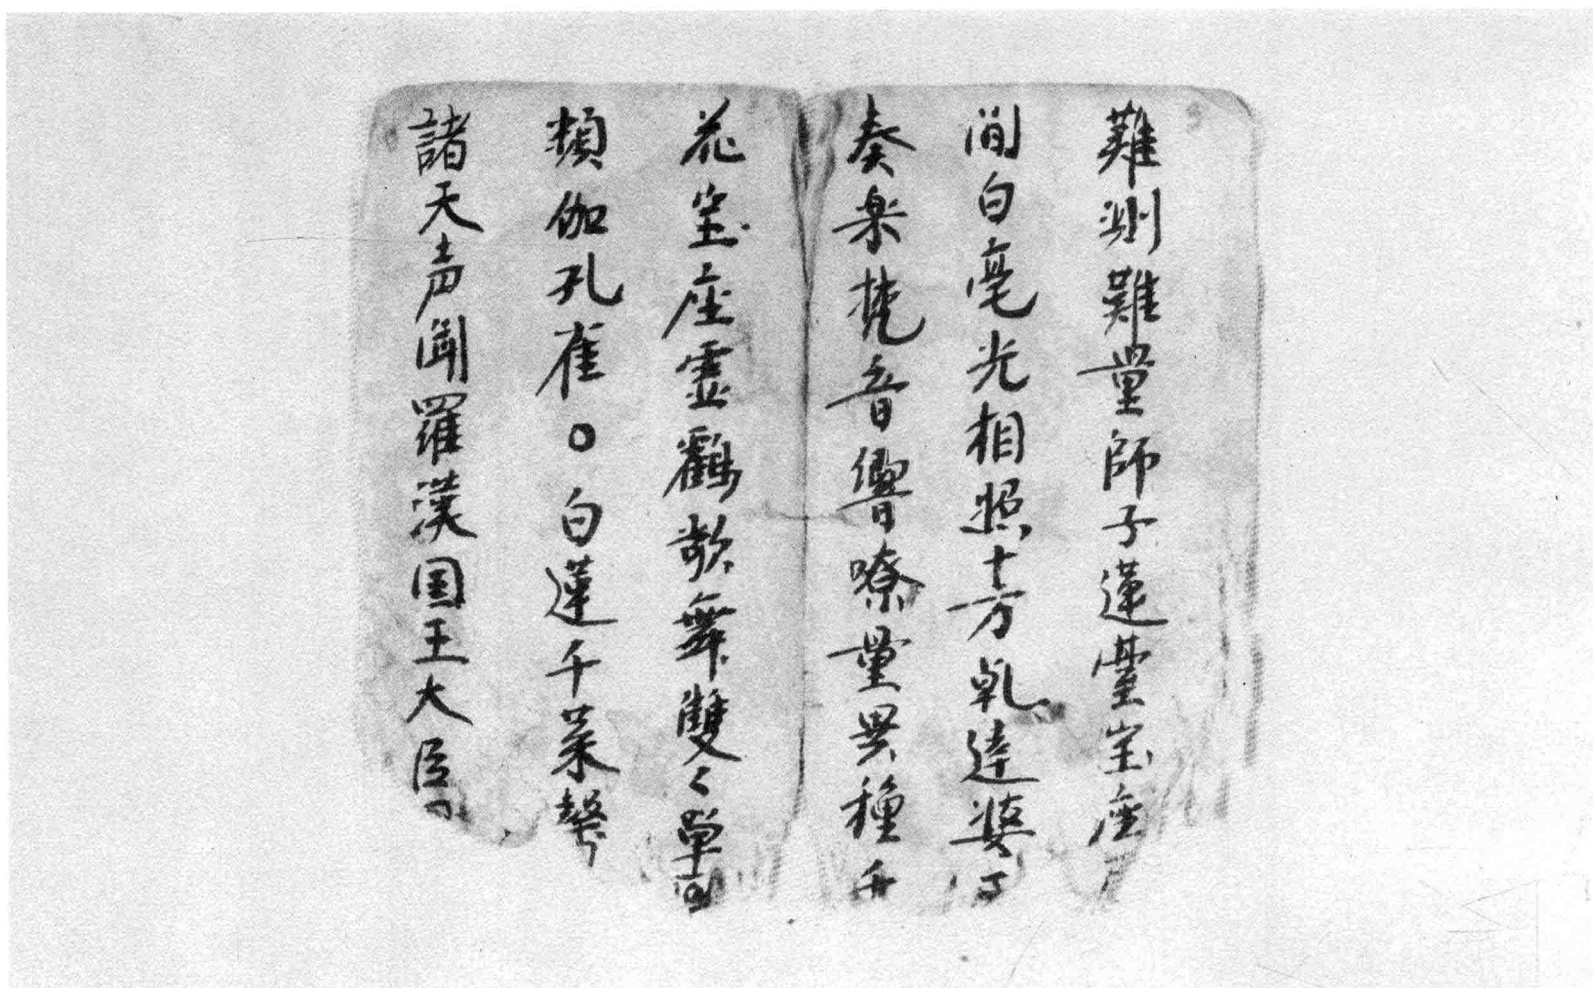 難測難量師子蓮臺宝座
间白毫光相照十方乹達婆
奏楽梵音響嘹量異種千
花宝座霊鶴歌舞雙々
頻伽孔雀〇白蓮千葉
諸天声闻羅漢国王大臣